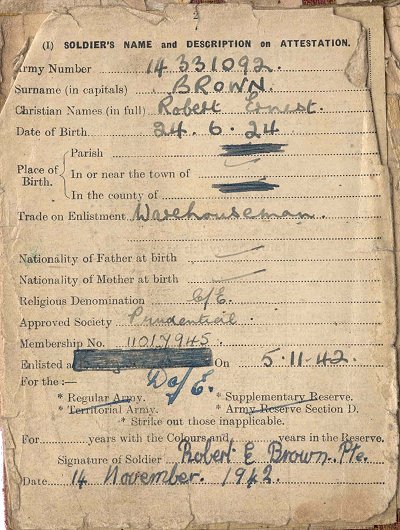 2
(I) SOLDIER'S NAME and DESCRIPTION on ATTESTATION.
Army Number 14331092.
Surname (in capitals) BROWN.
Christian Names (in full) Robert Ernest.
Date of Birth 24.6.24
Place of Birth.
Parish
In or near the town of
In the county of
Trade on Enlistment Warehouseman.
Nationality of Father at birth
Nationality of Mother at birth
Religious Denomination C/E.
Approved Society Prudential.
Membership No. 11017945.
Enlisted a On 5.11.42.
For the :— Do/E.
* Regular Army. * Supplementary Reserve.
* Territorial Army. * Army Reserve Section D.
* Strike out those inapplicable.
For years with the Colours and years in the Reserve.
Signature of Soldier Robert E Brown. Pte.
Date 14 November. 1942.